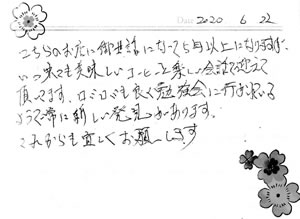 Date 2020 6 22
こちらのお店に御世話になって5年以上になりますが、
いつ来ても美味しいコーヒーと楽しい会話で迎えて
頂いてます。口コミも良く勉強会に行かれている
ようで常に新しい発見があります。
これからも宜しくお願いします